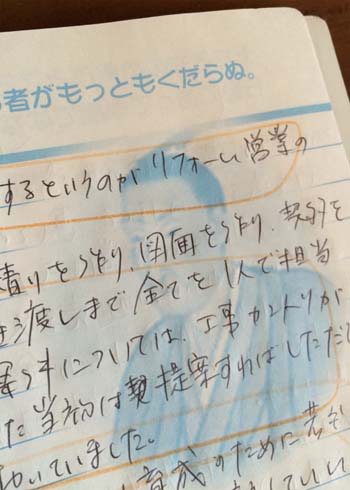 者がもっともくだらぬ。
するというのがリフォーム営業の
積りを作り、図面を作り、契約を
渡しまで全てを1人で担当
については、工事カントクが
た当初は提案すればしただ
いていました。
育成のために